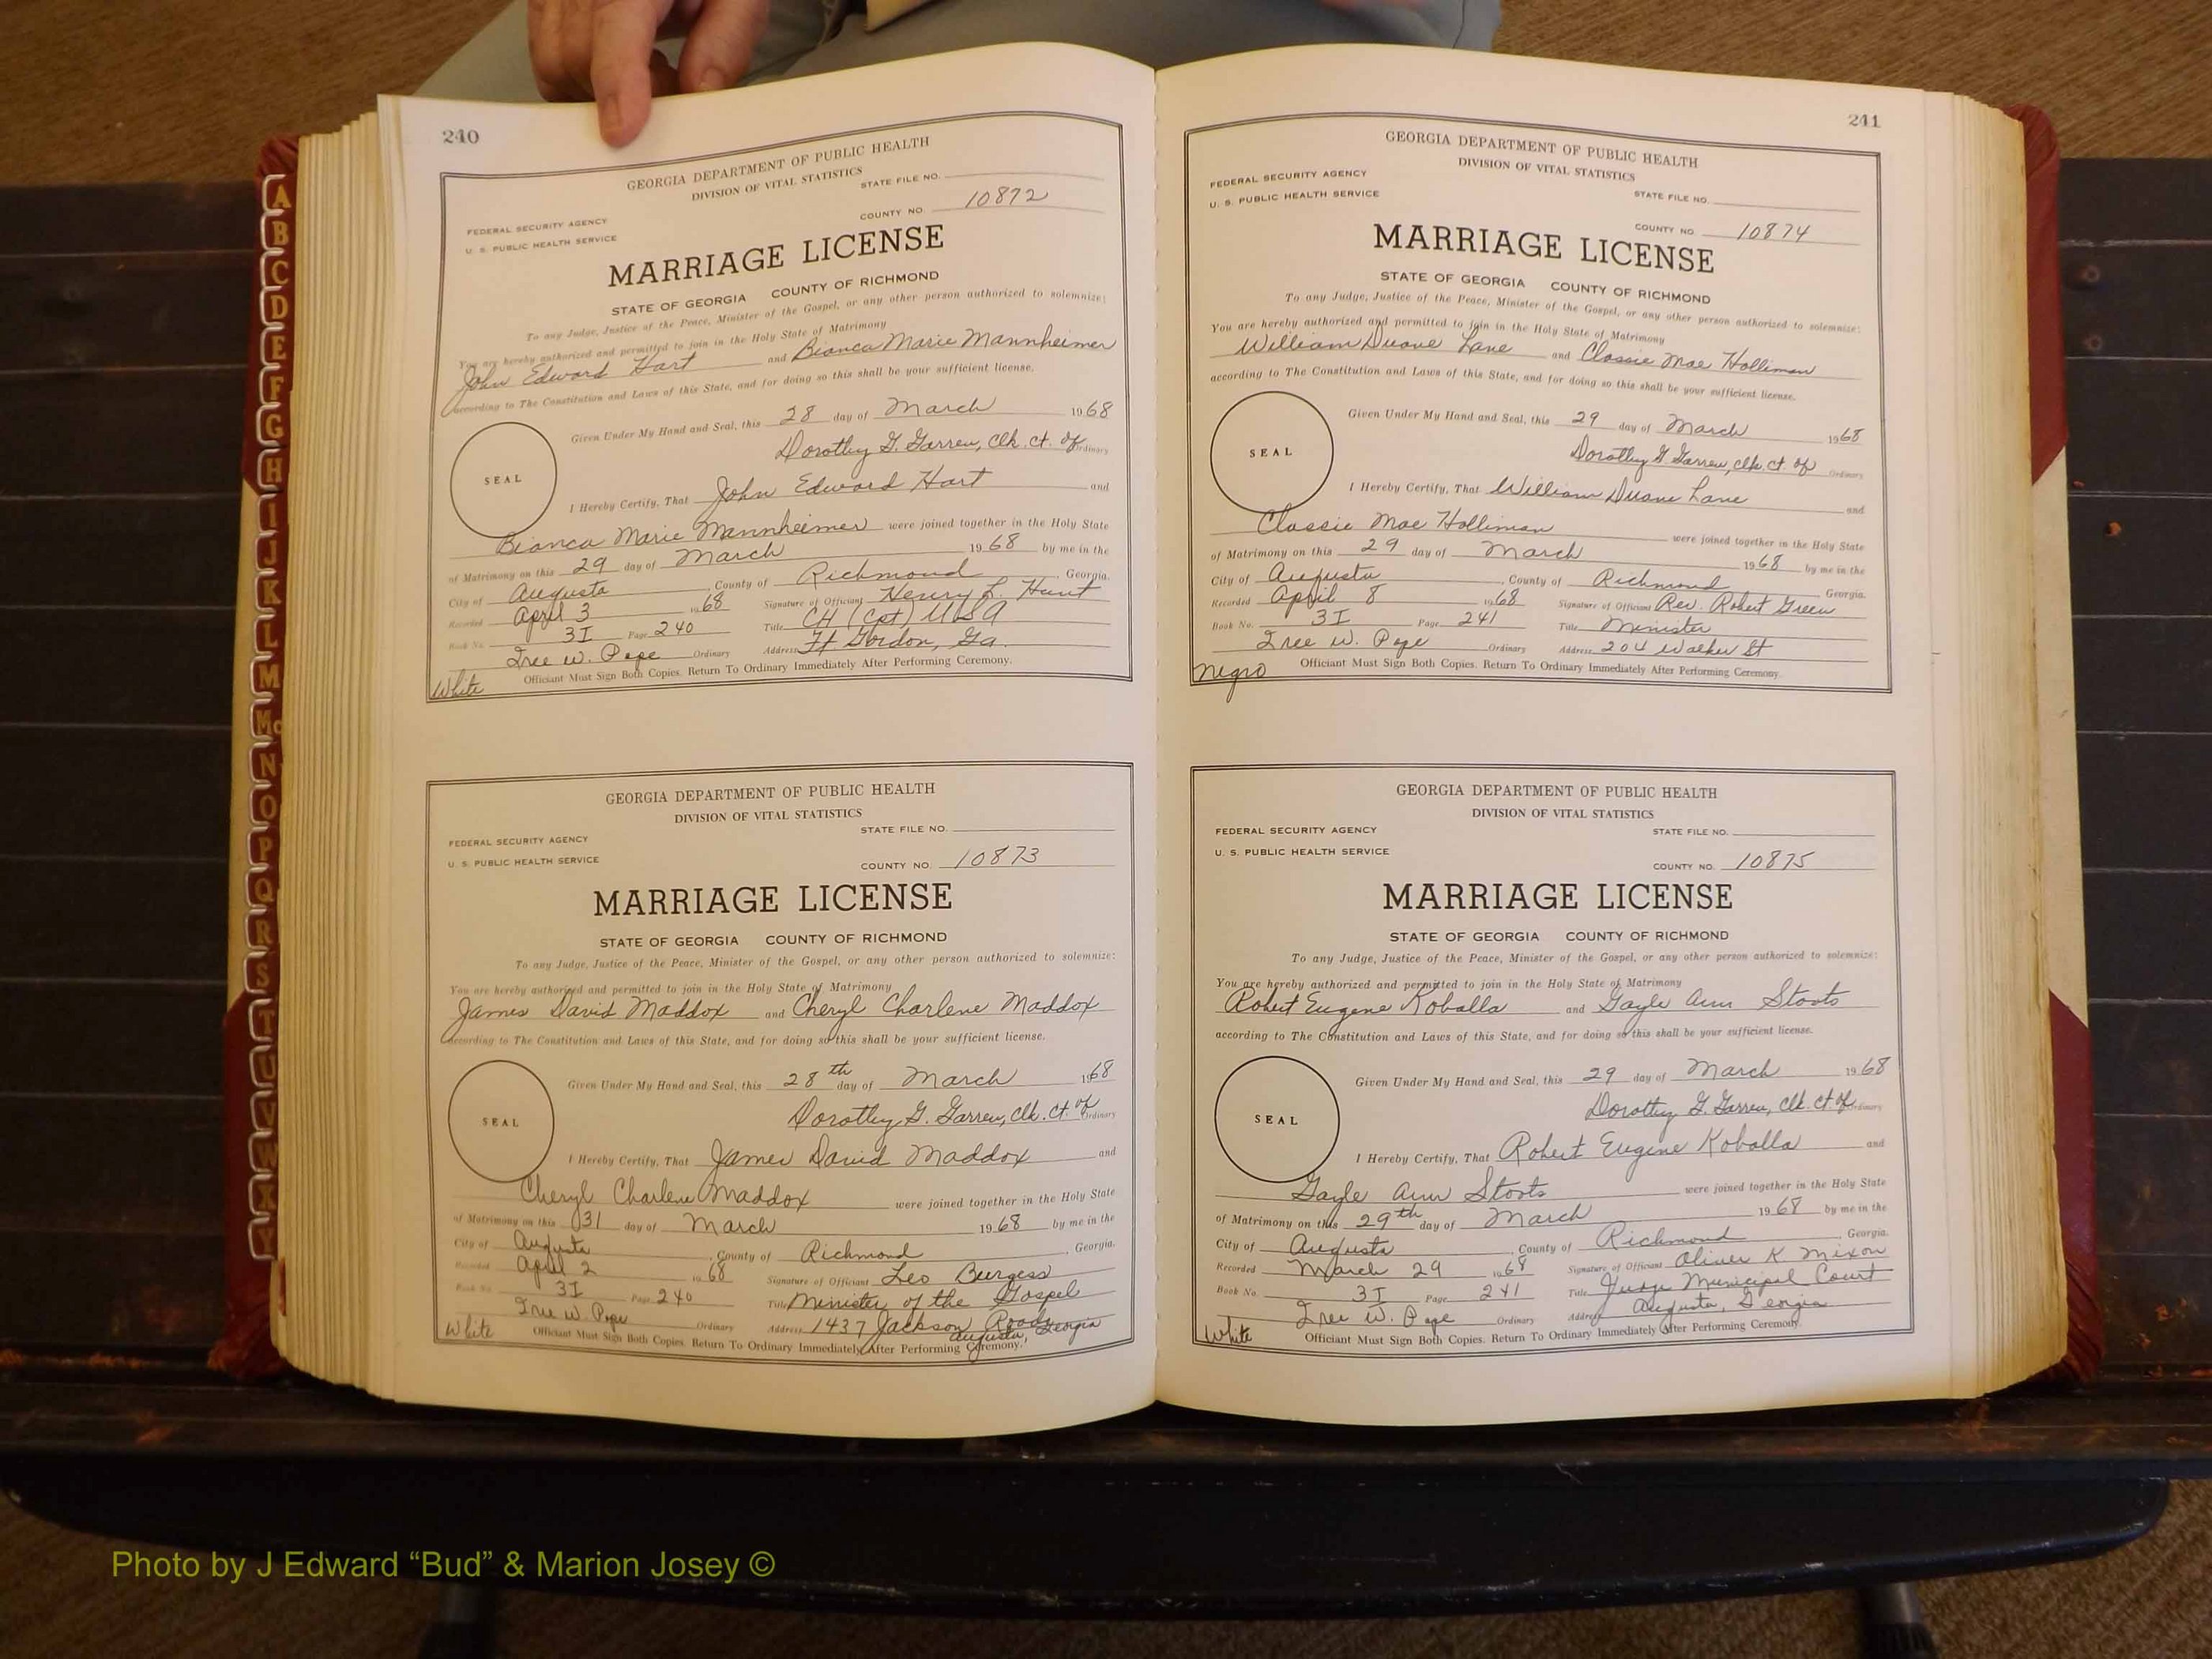 A
B
C
D
E
F
G
H
I
J
K
L
M
Mc
N
O
P
Q
R
S
T
U
V
W
X
Y
240
GEORGIA DEPARTMENT OF PUBLIC HEALTH
DIVISION OF VITAL STATISTICS
STATE FILE NO.
FEDERAL SECURITY AGENCY
U. S. PUBLIC HEALTH SERVICE
COUNTY NO. 10872
MARRIAGE LICENSE
STATE OF GEORGIA COUNTY OF RICHMOND
To any Judge, Justice of the Peace, Minister of the Gospel, or any other person authorized to solemnize:
You are hereby authorized and permitted to join in the Holy State of Matrimony
John Edward Hart and Bianca Marie Mannheimer
according to The Constitution and Laws of this State, and for doing so this shall be your sufficient license.
Given Under My Hand and Seal, this 28 day of March 1968
Dorothy G. Garren, Clk. Ct. of Ordinary
SEAL
I Hereby Certify, That John Edward Hart and
Bianca Marie Mannheimer were joined together in the Holy State
of Matrimony on this 29 day of March 1968 by me in the
City of Augusta, County of Richmond, Georgia.
Recorded April 3 1968 Signature of Officiant Henry L. Hunt
Book No. 3I Page 240 Title CH (Cpt) USA
Iree W. Pope Ordinary Address Ft Gordon, Ga.
White Officiant Must Sign Both Copies. Return To Ordinary Immediately After Performing Ceremony.
GEORGIA DEPARTMENT OF PUBLIC HEALTH
DIVISION OF VITAL STATISTICS
STATE FILE NO.
FEDERAL SECURITY AGENCY
U. S. PUBLIC HEALTH SERVICE
COUNTY NO. 10873
MARRIAGE LICENSE
STATE OF GEORGIA COUNTY OF RICHMOND
To any Judge, Justice of the Peace, Minister of the Gospel, or any other person authorized to solemnize:
You are hereby authorized and permitted to join in the Holy State of Matrimony
James David Maddox and Cheryl Charlene Maddox
according to The Constitution and Laws of this State, and for doing so this shall be your sufficient license.
Given Under My Hand and Seal, this 28th day of March 1968
Dorothy G. Garren, Clk. Ct. of Ordinary
SEAL
I Hereby Certify, That James David Maddox and
Cheryl Charlene Maddox were joined together in the Holy State
of Matrimony on this 31 day of March 1968 by me in the
City of Augusta, County of Richmond, Georgia.
Recorded April 2 1968 Signature of Officiant Leo Burgess
Book No. 3I Page 240 Title Minister of the Gospel
Iree W. Pope Ordinary Address 1437 Jackson Road
Augusta, Georgia
White Officiant Must Sign Both Copies. Return To Ordinary Immediately After Performing Ceremony.
241
GEORGIA DEPARTMENT OF PUBLIC HEALTH
DIVISION OF VITAL STATISTICS
FEDERAL SECURITY AGENCY
U. S. PUBLIC HEALTH SERVICE
STATE FILE NO.
COUNTY NO. 10874
MARRIAGE LICENSE
STATE OF GEORGIA COUNTY OF RICHMOND
To any Judge, Justice of the Peace, Minister of the Gospel, or any other person authorized to solemnize:
You are hereby authorized and permitted to join in the Holy State of Matrimony
William Duane Lane and Classie Mae Holliman
according to The Constitution and Laws of this State, and for doing so this shall be your sufficient license.
Given Under My Hand and Seal, this 29 day of March 1968
Dorothy G. Garren, Clk. Ct. of Ordinary
SEAL
I Hereby Certify, That William Duane Lane and
Classie Mae Holliman were joined together in the Holy State
of Matrimony on this 29 day of March 1968 by me in the
City of Augusta, County of Richmond, Georgia.
Recorded April 8 1968 Signature of Officiant Rev. Robert Green
Book No. 3I Page 241 Title Minister
Iree W. Pope Ordinary Address 204 Walker St
Negro Officiant Must Sign Both Copies. Return To Ordinary Immediately After Performing Ceremony.
GEORGIA DEPARTMENT OF PUBLIC HEALTH
DIVISION OF VITAL STATISTICS
FEDERAL SECURITY AGENCY
STATE FILE NO.
U. S. PUBLIC HEALTH SERVICE
COUNTY NO. 10875
MARRIAGE LICENSE
STATE OF GEORGIA COUNTY OF RICHMOND
To any Judge, Justice of the Peace, Minister of the Gospel, or any other person authorized to solemnize:
You are hereby authorized and permitted to join in the Holy State of Matrimony
Robert Eugene Koballa and Gayle Ann Stoots
according to The Constitution and Laws of this State, and for doing so this shall be your sufficient license.
Given Under My Hand and Seal, this 29 day of March 1968
Dorothy G. Garren, Clk. Ct. of Ordinary
SEAL
I Hereby Certify, That Robert Eugene Koballa and
Gayle Ann Stoots were joined together in the Holy State
of Matrimony on this 29th day of March 1968 by me in the
City of Augusta, County of Richmond, Georgia.
Recorded March 29 1968 Signature of Officiant Oliver K Mixon
Book No. 3I Page 241 Title Judge Municipal Court
Iree W. Pope Ordinary Address Augusta, Georgia
White Officiant Must Sign Both Copies. Return To Ordinary Immediately After Performing Ceremony.
Photo by J Edward “Bud” & Marion Josey ©